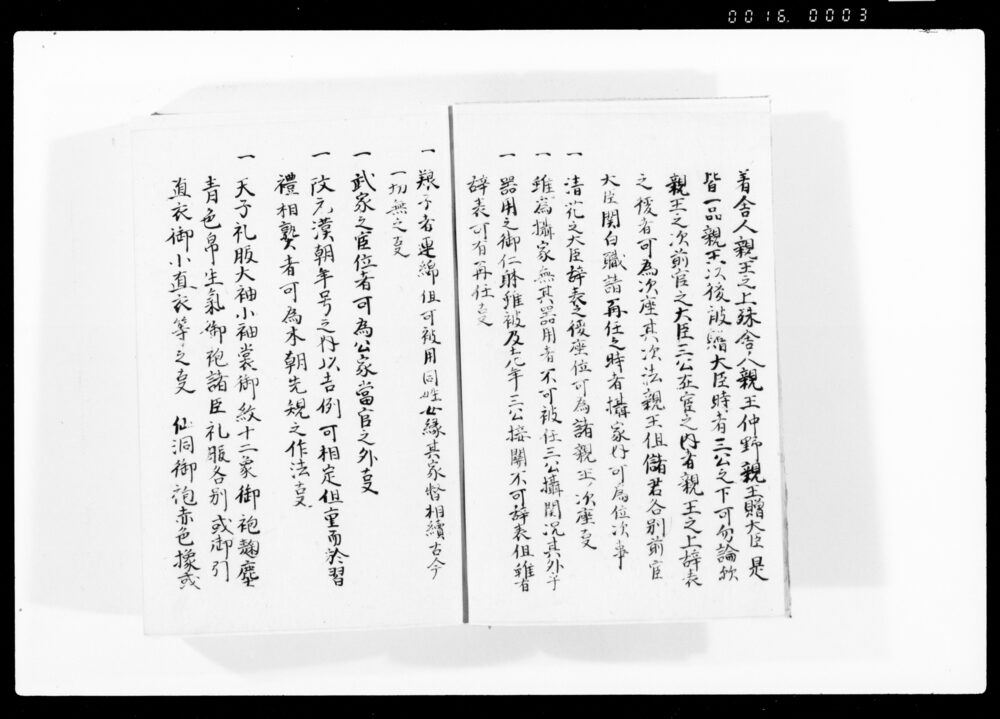 0016. 0003
着舎人親王之上殊舎人親王仲野親王贈大臣是
皆一品親王次後被贈大臣時者三公之下可勿論歟
親王之次前官之大臣三公在官之内者親王之上辞表
之後者可為次座其次法親王但儲君各別前官
大臣関白職諸再任之時者摂家内可為位次事
一 清花之大臣辞表之後座位可為諸親王之次座事
一 雖為攝家無其器用者不可被任三公攝関況其外乎
一 器用之御仁躰雖被及老年三公接關不可辞表但雖有
辞表可有再任事
一 親子者連綿但可被用同姓女縁其家督相續古今
一切無之事
一 武家之官位者可為公家當官之外事
一 改元漢朝年号之内以吉例可相定但重而於習
禮相熟者可為本朝先規之作法事
一 天子礼服大袖小袖裳御紋十二象御袍麹塵
青色帛生氣御袍諸臣礼服各別或御引
直衣御小直衣等之事 仙洞御袍赤色橡或